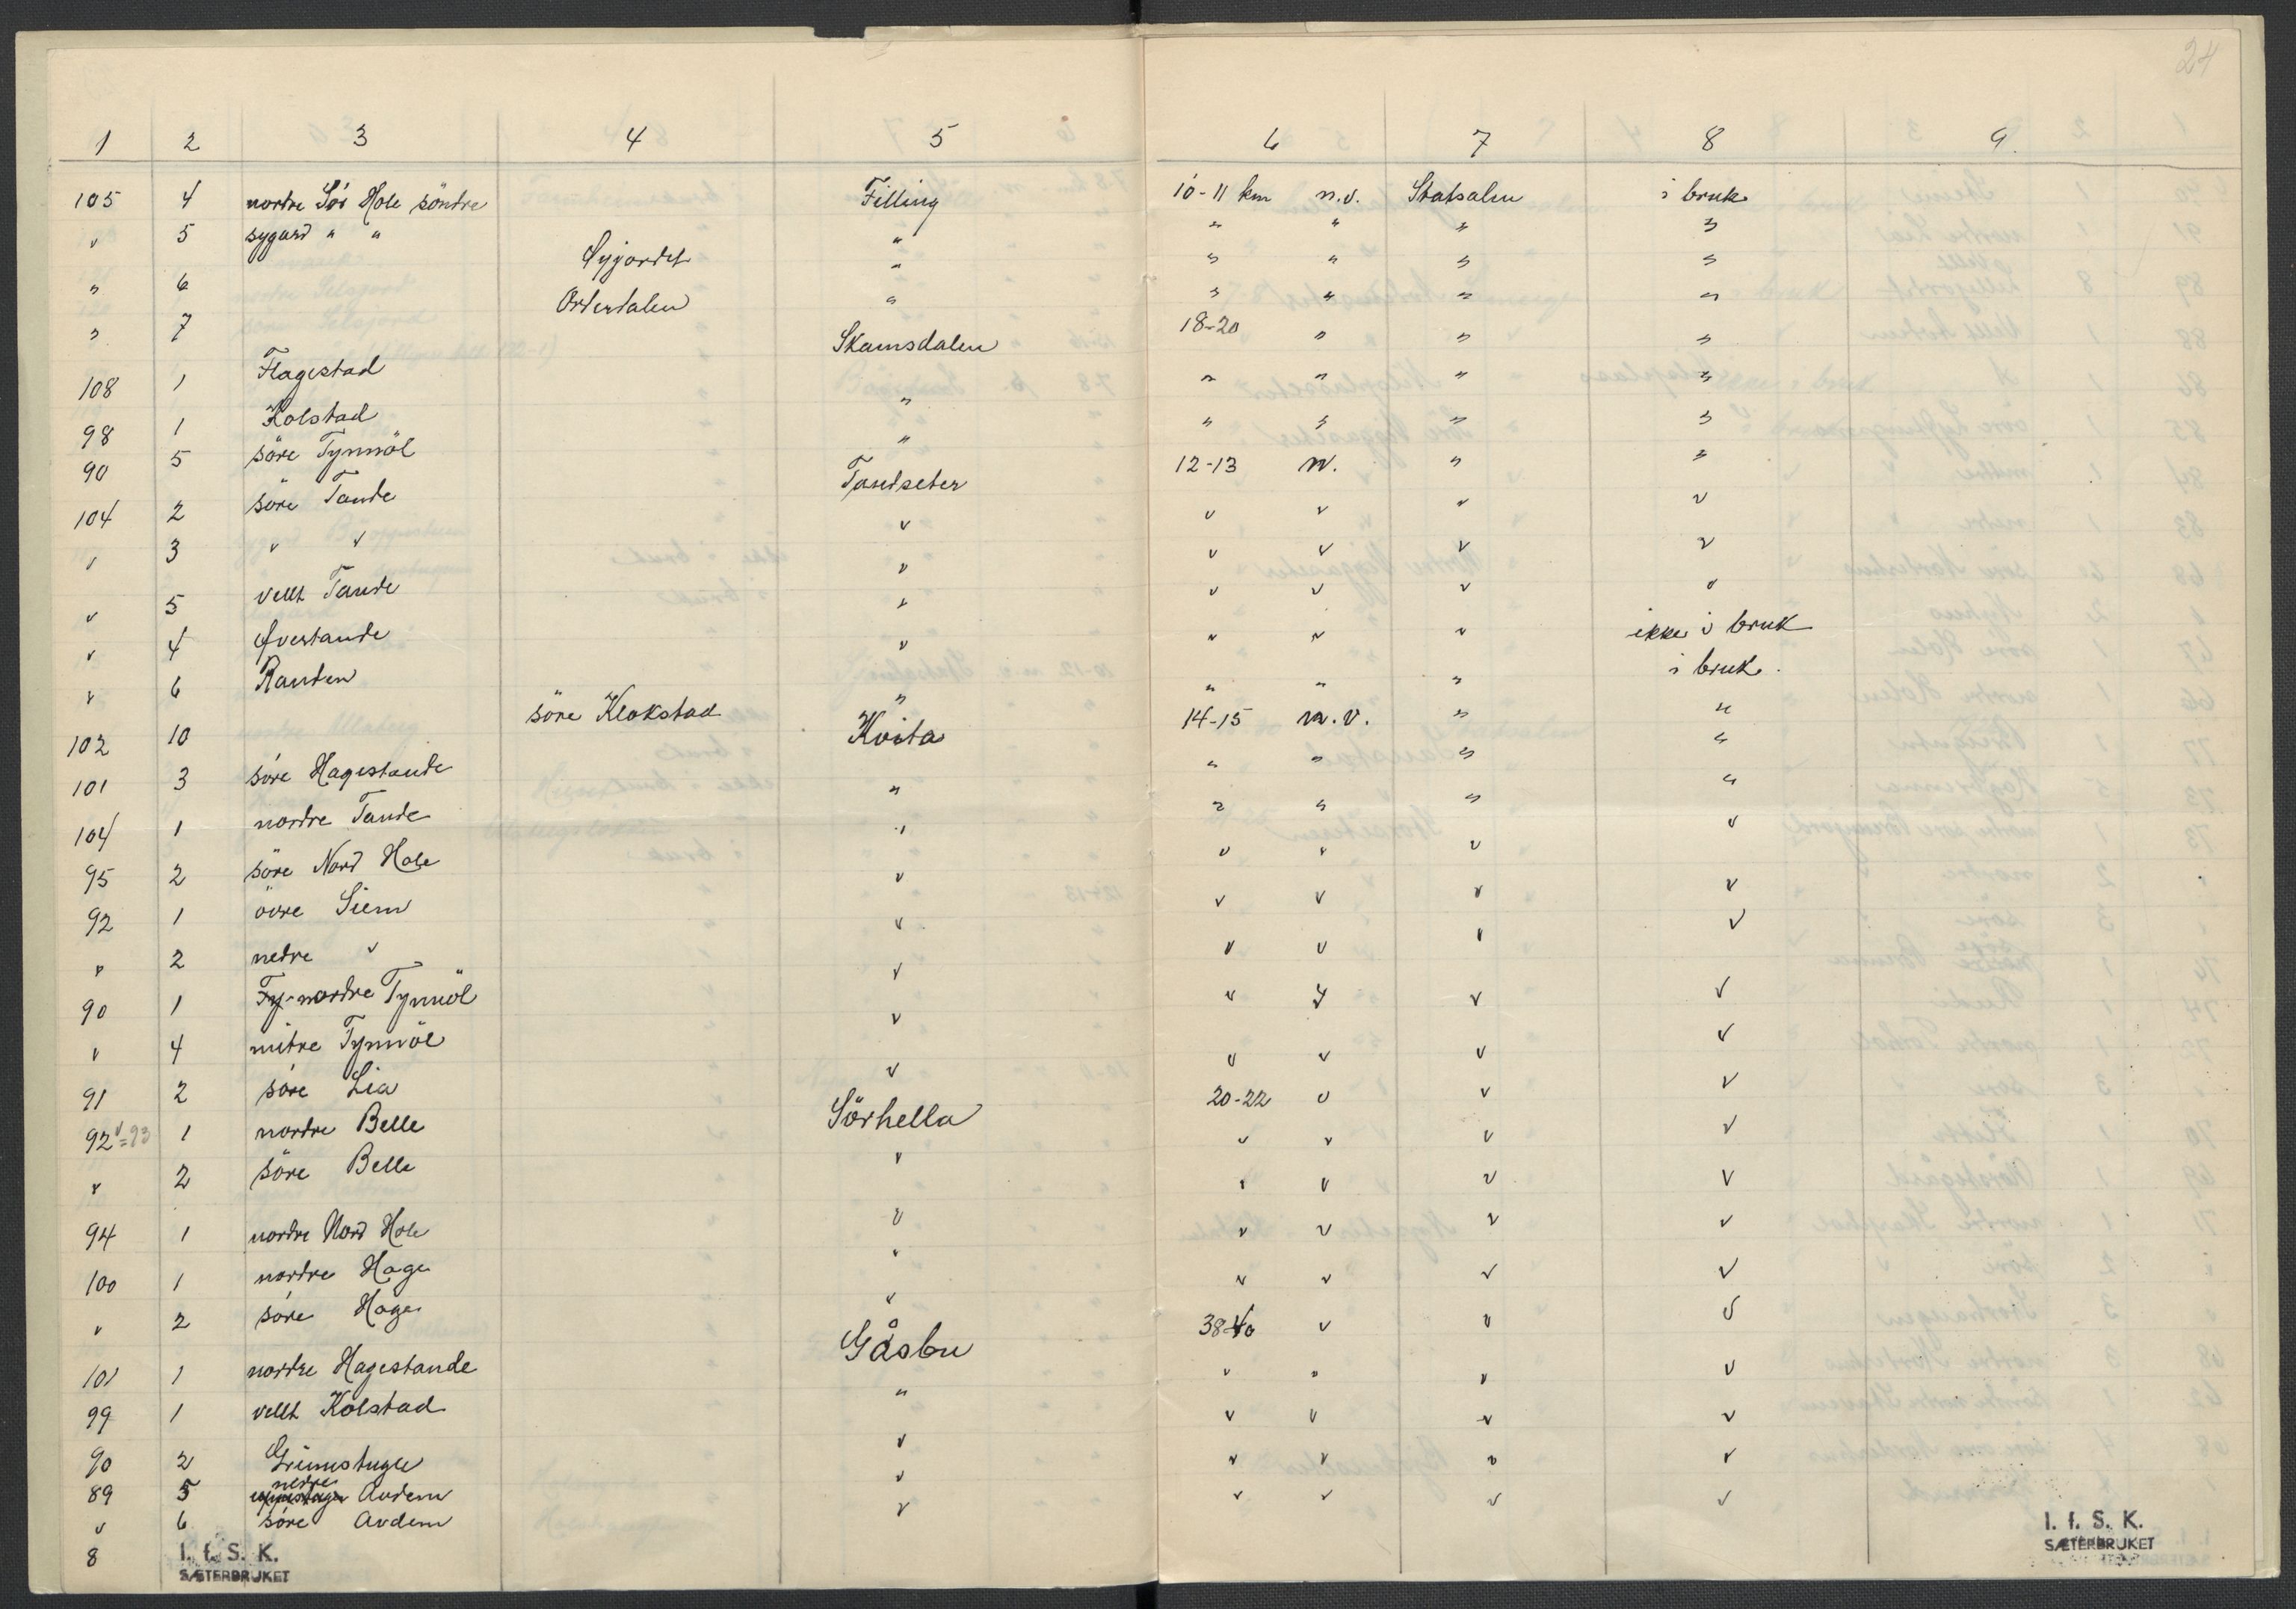 24
1 2 3 4 5 6 7 8 9.
105 4 nordre Sør Hole söndre Filling 10-11 km n.v. Statsalm i bruk
" 5 sygard " " " " " " "
" 6 Sygardet " " " " "
" 7 Østerdalen " " " " "
108 1 Flagestad Skamsdalen 18-20 " " "
98 1 Kolstad " " " " "
90 5 söre Tynnöl " " " " "
104 2 söre Tande Tandseter 12-13 n. " "
" 3 " " " " " " "
" 5 vellt Tande " " " " "
" 4 Øvertande " " " " "
" 6 Randen " " " " ikke i bruk
102 10 söre Klokstad " " " " i bruk.
101 3 söre Hagestande Kvita 14-15 n.v. " "
104 1 nordre Tande " " " " "
95 2 söre Nord Hole " " " " "
92 1 övre Siem " " " " "
" 2 nedre " " " " " "
90 1 nordre Tynnöl " " " " "
" 4 mitre Tynnöl " " " " "
91 2 söre Lia " " " " "
92=93 1 nordre Belle Sörhella 20-22 " " "
" 2 söre Belle " " " " "
94 1 nordre Nord Hole " " " " "
100 1 nordre Hage " " " " "
" 2 söre Hage " " " " "
101 1 nordre Hagestande Gåsbu 38-40 " " "
99 1 vellt Kolstad " " " " "
90 2 Grimstugu " " " " "
89 5 nedre Avdem " " " " "
" 6 söre Avdem " " " " "
8
I. f. S. K.
SÆTERBRUKET
I. f. S. K.
SÆTERBRUKET